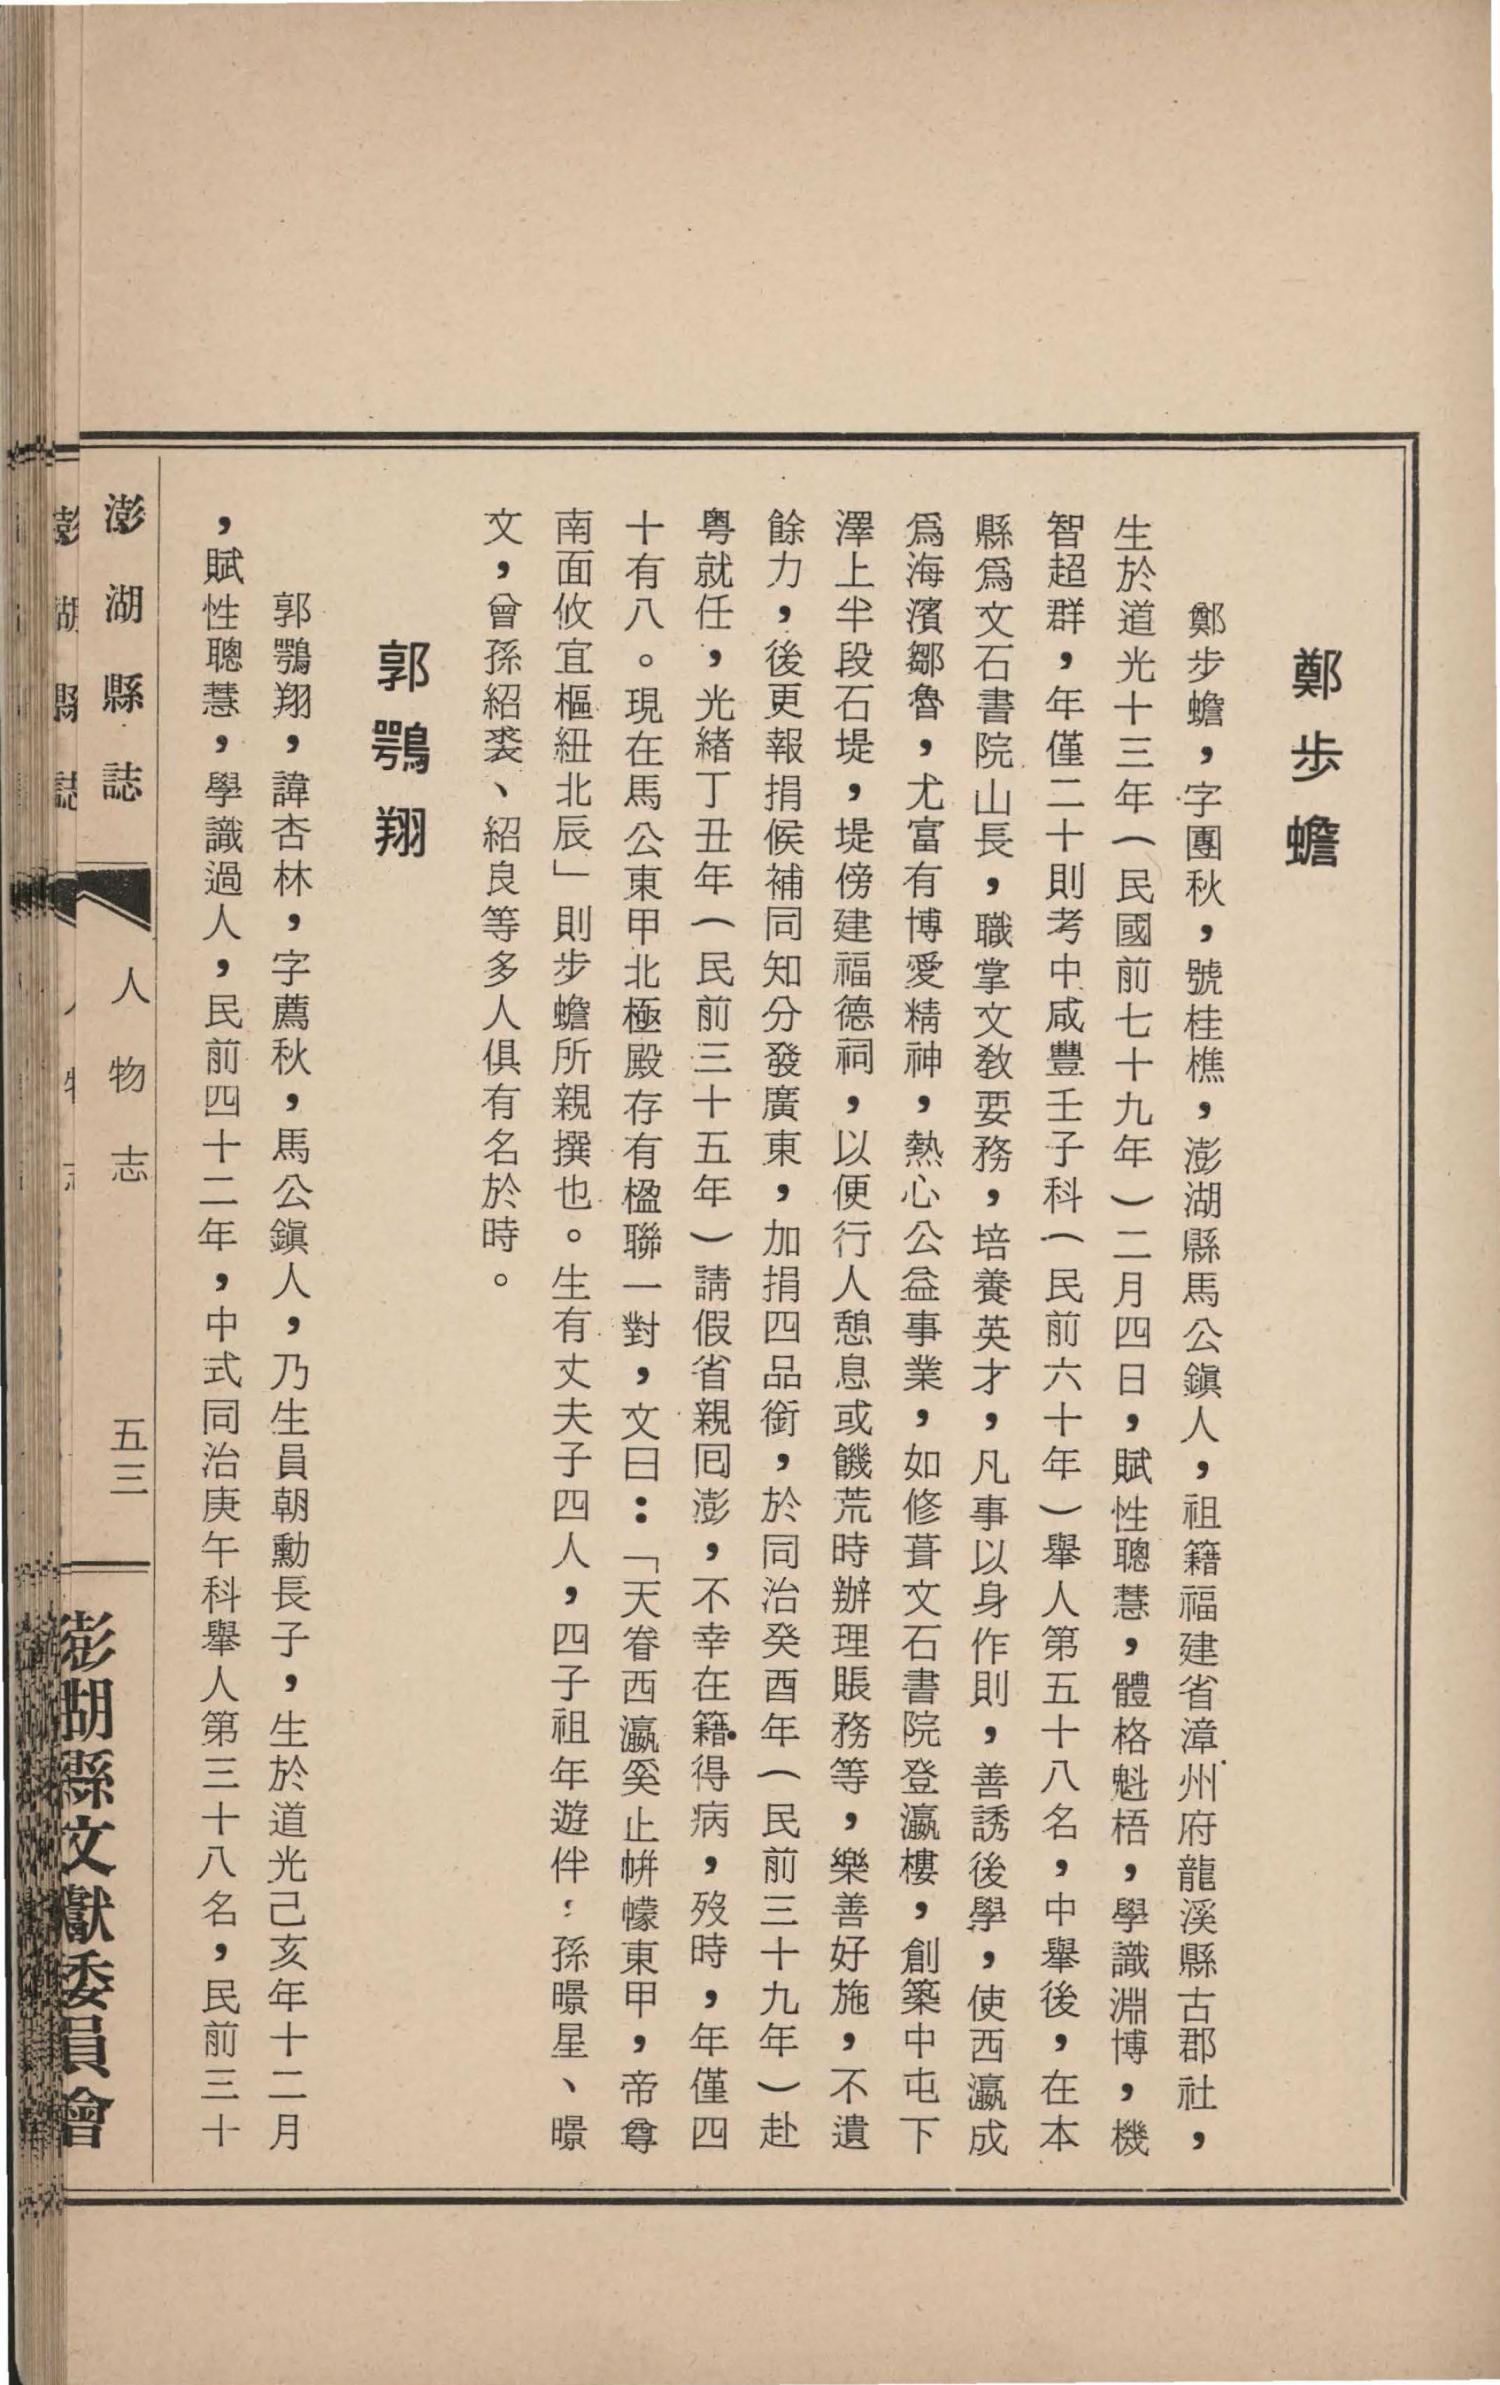 鄭步蟾
鄭步蟾，字團秋，號桂樵，澎湖縣馬公鎭人，祖籍福建省漳州府龍溪縣古郡社，
生於道光十三年（民國前七十九年）二月四日，賦性聰慧，體格魁梧，學識淵博，機
智超群，年僅二十則考中咸豐壬子科（民前六十年）舉人第五十八名，中舉後，在本
縣爲文石書院山長，職掌文敎要務，培養英才，凡事以身作則，善誘後學，使西瀛成
爲海濱鄒魯，尤富有博愛精神，熱心公益事業，如修葺文石書院登瀛樓，創築中屯下
澤上半段石堤，堤傍建福德祠，以便行人憩息或饑荒時辦理賬務等，樂善好施，不遺
餘力，後更報捐候補同知分發廣東，加捐四品銜，於同治癸酉年（民前三十九年）赴
粤就任，光緒丁丑年（民前三十五年）請假省親囘澎，不幸在籍得病，歿時，年僅四
十有八。現在馬公東甲北極殿存有楹聯一對，文曰：「天眷西瀛奚止帡幪東甲，帝尊
南面攸宜樞紐北辰」則步蟾所親撰也。生有丈夫子四人，四子祖年遊伴，孫暻星、暻
文，曾孫紹裘、紹良等多人俱有名於時。
郭鶚翔
郭鶚翔，諱杏林，字薦秋，馬公鎭人，乃生員朝勳長子，生於道光己亥年十二月
，賦性聰慧，學識過人，民前四十二年，中式同治庚午科舉人第三十八名，民前三十
澎湖縣誌
人物志
五三
澎湖縣文獻委員會